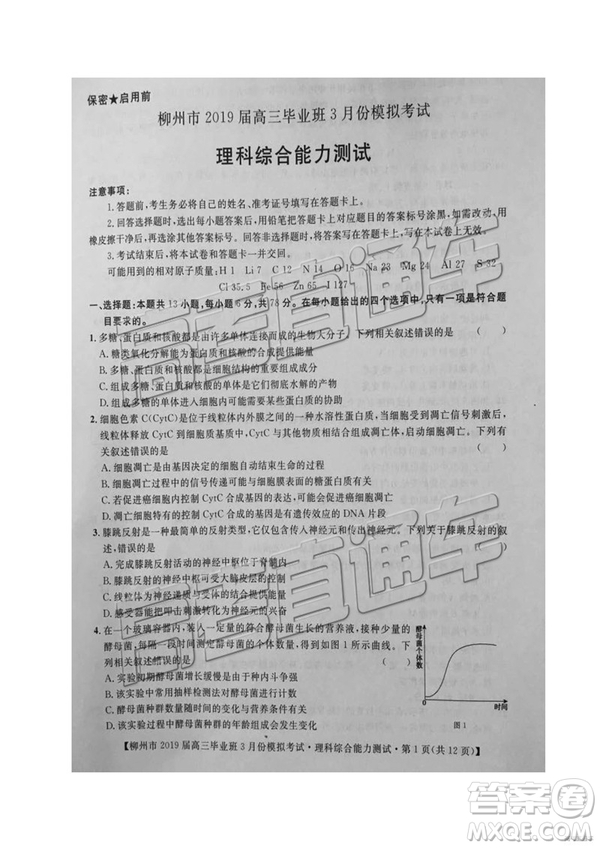 保密★启用前
柳州市 2019 届高三毕业班 3 月份模拟考试
理科综合能力测试
注意事项：
1. 答题前，考生务必将自己的姓名、准考证号填写在答题卡上。
2. 回答选择题时，选出每小题答案后，用铅笔把答题卡上对应题目的答案标号涂黑，如需改动，用
橡皮擦干净后，再选涂其他答案标号。回答非选择题时，将答案写在答题卡上，写在本试卷上无效。
3. 考试结束后，将本试卷和答题卡一并交回。
可能用到的相对原子质量：H 1 Li 7 C 12 N 14 O 16 Na 23 Mg 24 Al 27 S 32
Cl 35.5 Fe 56 Zn 65 I 127
一、选择题：本题共 13 小题，每小题 6 分，共 78 分。在每小题给出的四个选项中，只有一项是符合题
目要求的。
1. 多糖、蛋白质和核酸都是由许多单体连接而成的生物大分子。下列相关叙述错误的是 （ ）
A. 糖类氧化分解能为蛋白质和核酸的合成提供能量
B. 多糖、蛋白质和核酸都是细胞结构的重要组成成分
C. 组成蛋白质和核酸的单体都含有 C、H、O、N
D. 组成多糖、蛋白质和核酸的单体都可能有多种
2. 细胞色素 C(CytC)是位于线粒体内外膜之间的一种水溶性蛋白质，当细胞受到凋亡信号刺激后，
线粒体释放 CytC 到细胞质基质中，CytC 与其他相关蛋白质共同作用而启动细胞凋亡。下列有
关叙述错误的是 （ ）
A. 细胞凋亡是由基因决定的细胞自动结束生命的过程
B. 细胞凋亡过程中信号传递受阻，可能会引起细胞癌变
C. 若促进癌细胞内控制 CytC 合成基因的表达，则可能促进癌细胞的凋亡
D. 细胞凋亡的实质是控制 CytC 合成及释放的 DNA 片段发生改变
3. 膝跳反射是一种最简单的反射类型，它仅包含传入神经元和传出神经元。下列关于膝跳反射的叙
述，错误的是 （ ）
A. 完成膝跳反射活动的神经中枢位于脊髓内
B. 膝跳反射的神经中枢可受大脑皮层的控制
C. 线粒体为神经递质与受体的结合提供能量
D. 感受器兴奋后不一定能引起膝跳反射
4. 在一个玻璃容器内，装入一定量的符合酵母菌生长的营养液，接种少量的
酵母菌，每隔一段时间测定酵母菌的个体数量，结果如图 1 所示。下列相
关叙述错误的是 （ ）
A. 前期酵母菌种群数量增长缓慢是由于高斗争强度
B. 该实验中常用抽样检测法对酵母菌进行计数
C. 酵母菌种群数量增长最快时，其种内斗争不是最剧烈
D. 该实验过程中酵母菌种群的年龄组成会发生变化
酵母菌个体数
时间
图 1
【柳州市 2019 届高三毕业班 3 月份模拟考试·理科综合能力测试·第 1 页(共 12 页)】
高考直通车
高考直通车
答案圈